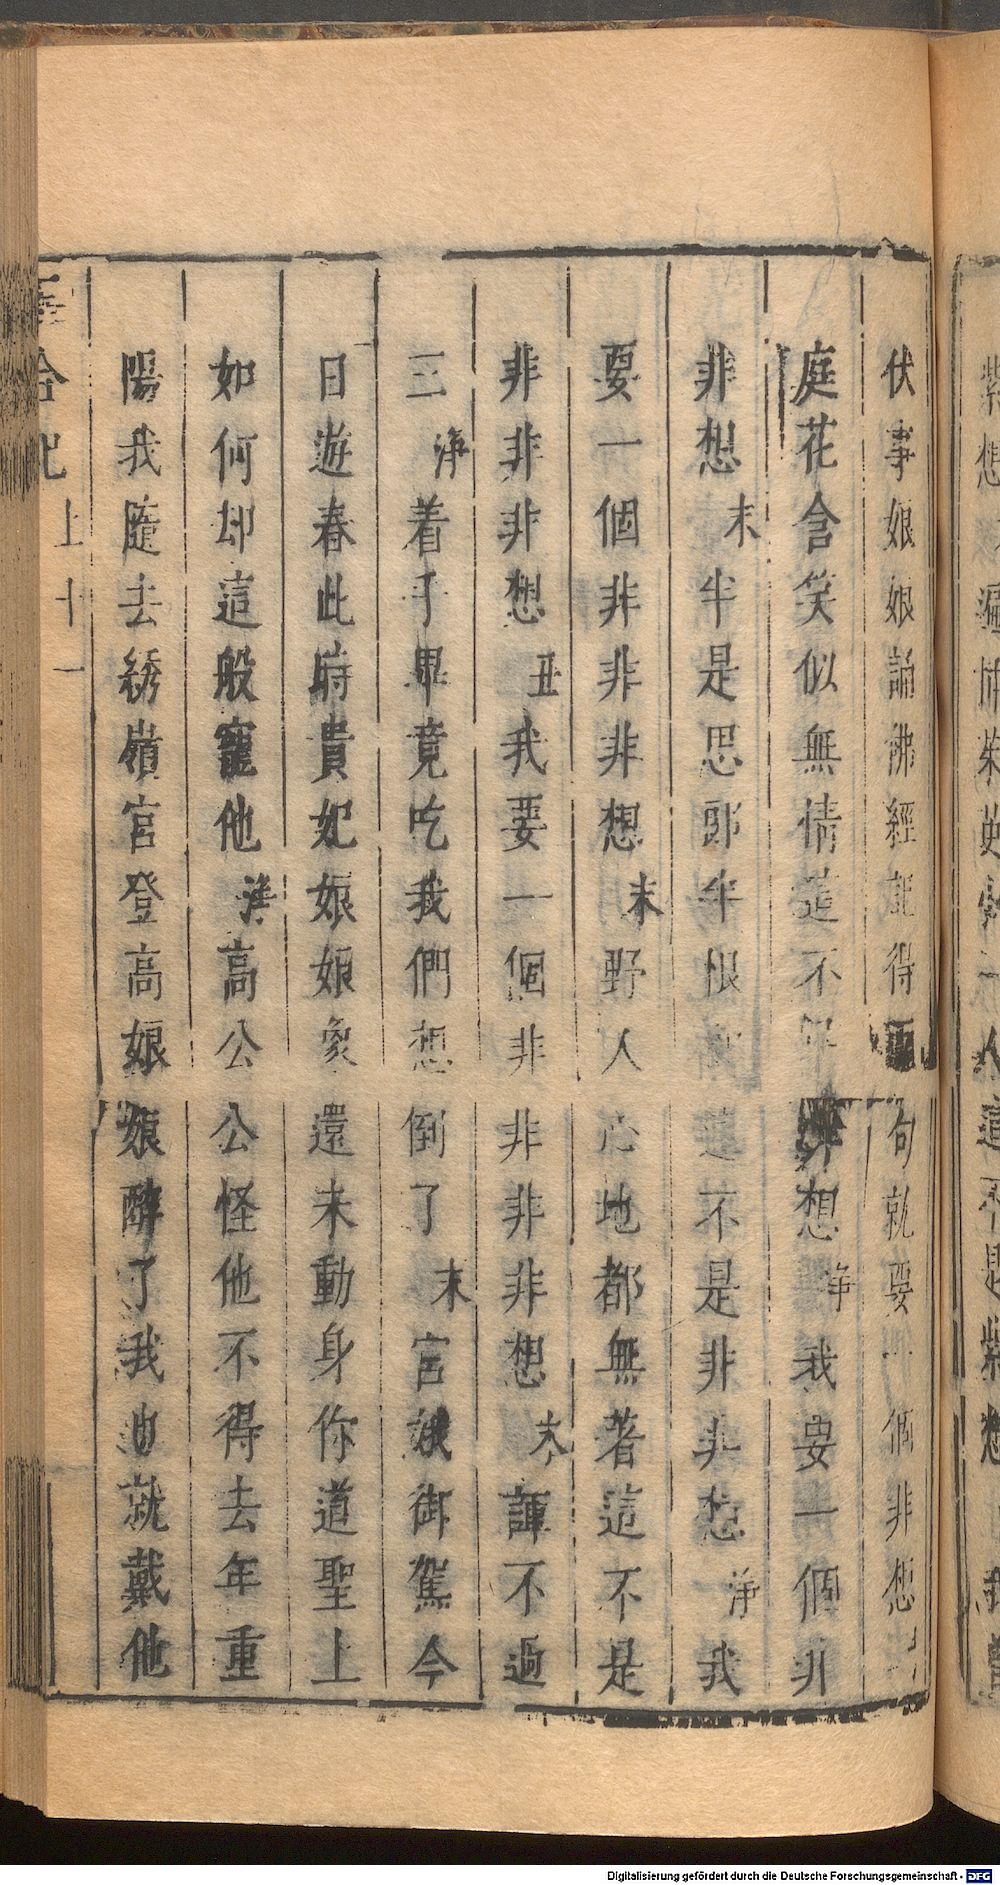 伏事娘娘誦佛經記得兩句就要一個非想
庭花含笑似無情道不得非想淨我要一個非
非想末半是思郎半恨這不是非非想淨我
要一個非非非想末野人心地都無著這不是
非非非想丑我要一個非非非非想末諢不過
三淨着手畢竟吃我們想倒了末宮娥御駕今
日遊春此時貴妃娘娘象還未動身你道聖上
如何却這般寵他淨高公公怪他不得去年重
陽我隨去綉嶺宮登高娘娘醉了我也就戴他
合記 上 十一
Digitalisierung gefördert durch die Deutsche Forschungsgemeinschaft - DFG